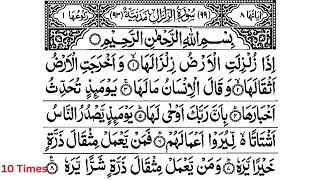 اٰيَاتُهَا ٨ (٩٩) سُوْرَةُ الزِّلْزَالِ مَدَنِيَّةٌ (٩٣) رُكُوْعُهَا ١
بِسْمِ اللّٰهِ الرَّحْمٰنِ الرَّحِيْمِ
اِذَا زُلْزِلَتِ الْاَرْضُ زِلْزَالَهَا ۙ وَاَخْرَجَتِ الْاَرْضُ
اَثْقَالَهَا ۙ وَقَالَ الْاِنْسَانُ مَا لَهَا ۚ يَوْمَئِذٍ تُحَدِّثُ
اَخْبَارَهَا ۙ بِاَنَّ رَبَّكَ اَوْحٰى لَهَا ؕ يَوْمَئِذٍ يَّصْدُرُ النَّاسُ
اَشْتَاتًا ۙ۬ لِّيُرَوْا اَعْمَالَهُمْ ؕ فَمَنْ يَّعْمَلْ مِثْقَالَ ذَرَّةٍ
خَيْرًا يَّرَهٗ ؕ وَمَنْ يَّعْمَلْ مِثْقَالَ ذَرَّةٍ شَرًّا يَّرَهٗ ٨
10 Times